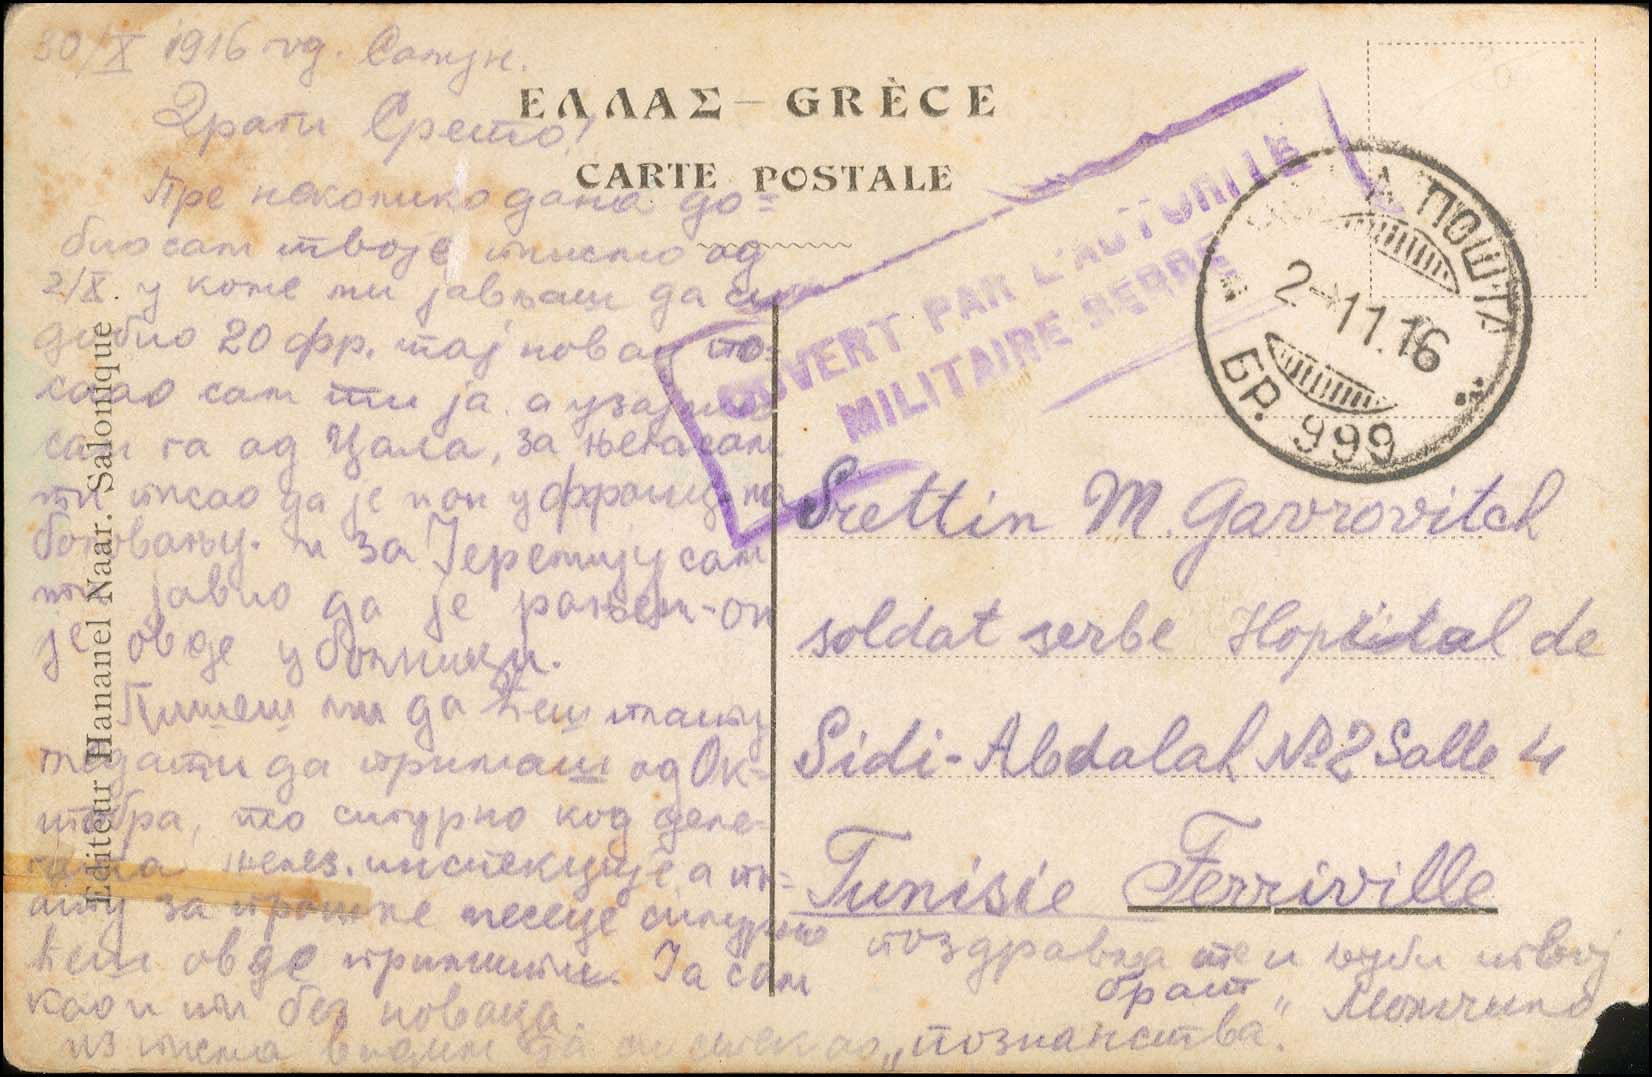 30/X 1916 год. Солун.
Драги Срето!
Пре неколико дана до=
био сам твоје писмо од
2/X. у коме ми јављаш да си
добио 20 фр. тај новац по=
слао сам ти ја а узајмио
сам га од Цала, за њега сам
ти писао да је он у Француз. на
боловању. и за Јеремију сам
ти јавио да је рањен-он
је овде у болници.
Пишеш ми да ћеш плату
модати да примаш од Ок=
тобра, то сигурно код деле=
гата инспекције, а пл=
ату за прошле месеце сигурно
ћеш овде примити. Ја сам
као и ти без новаца.
из писма видим да си стекао „познанства".
ΕΛΛΑΣ – GRÈCE
CARTE POSTALE
Editeur Hananel Naar. Salonique
OUVERT PAR L'AUTORITE
MILITAIRE SERBE
ПОШТА
2-11.16
БР. 999
Srettin M. Gavrovitch
soldat serbe Hopital de
Sidi-Abdalah № 2 Salle 4
Tunisie Ferriville
поздравља те и љуби твој
брат „Момчило